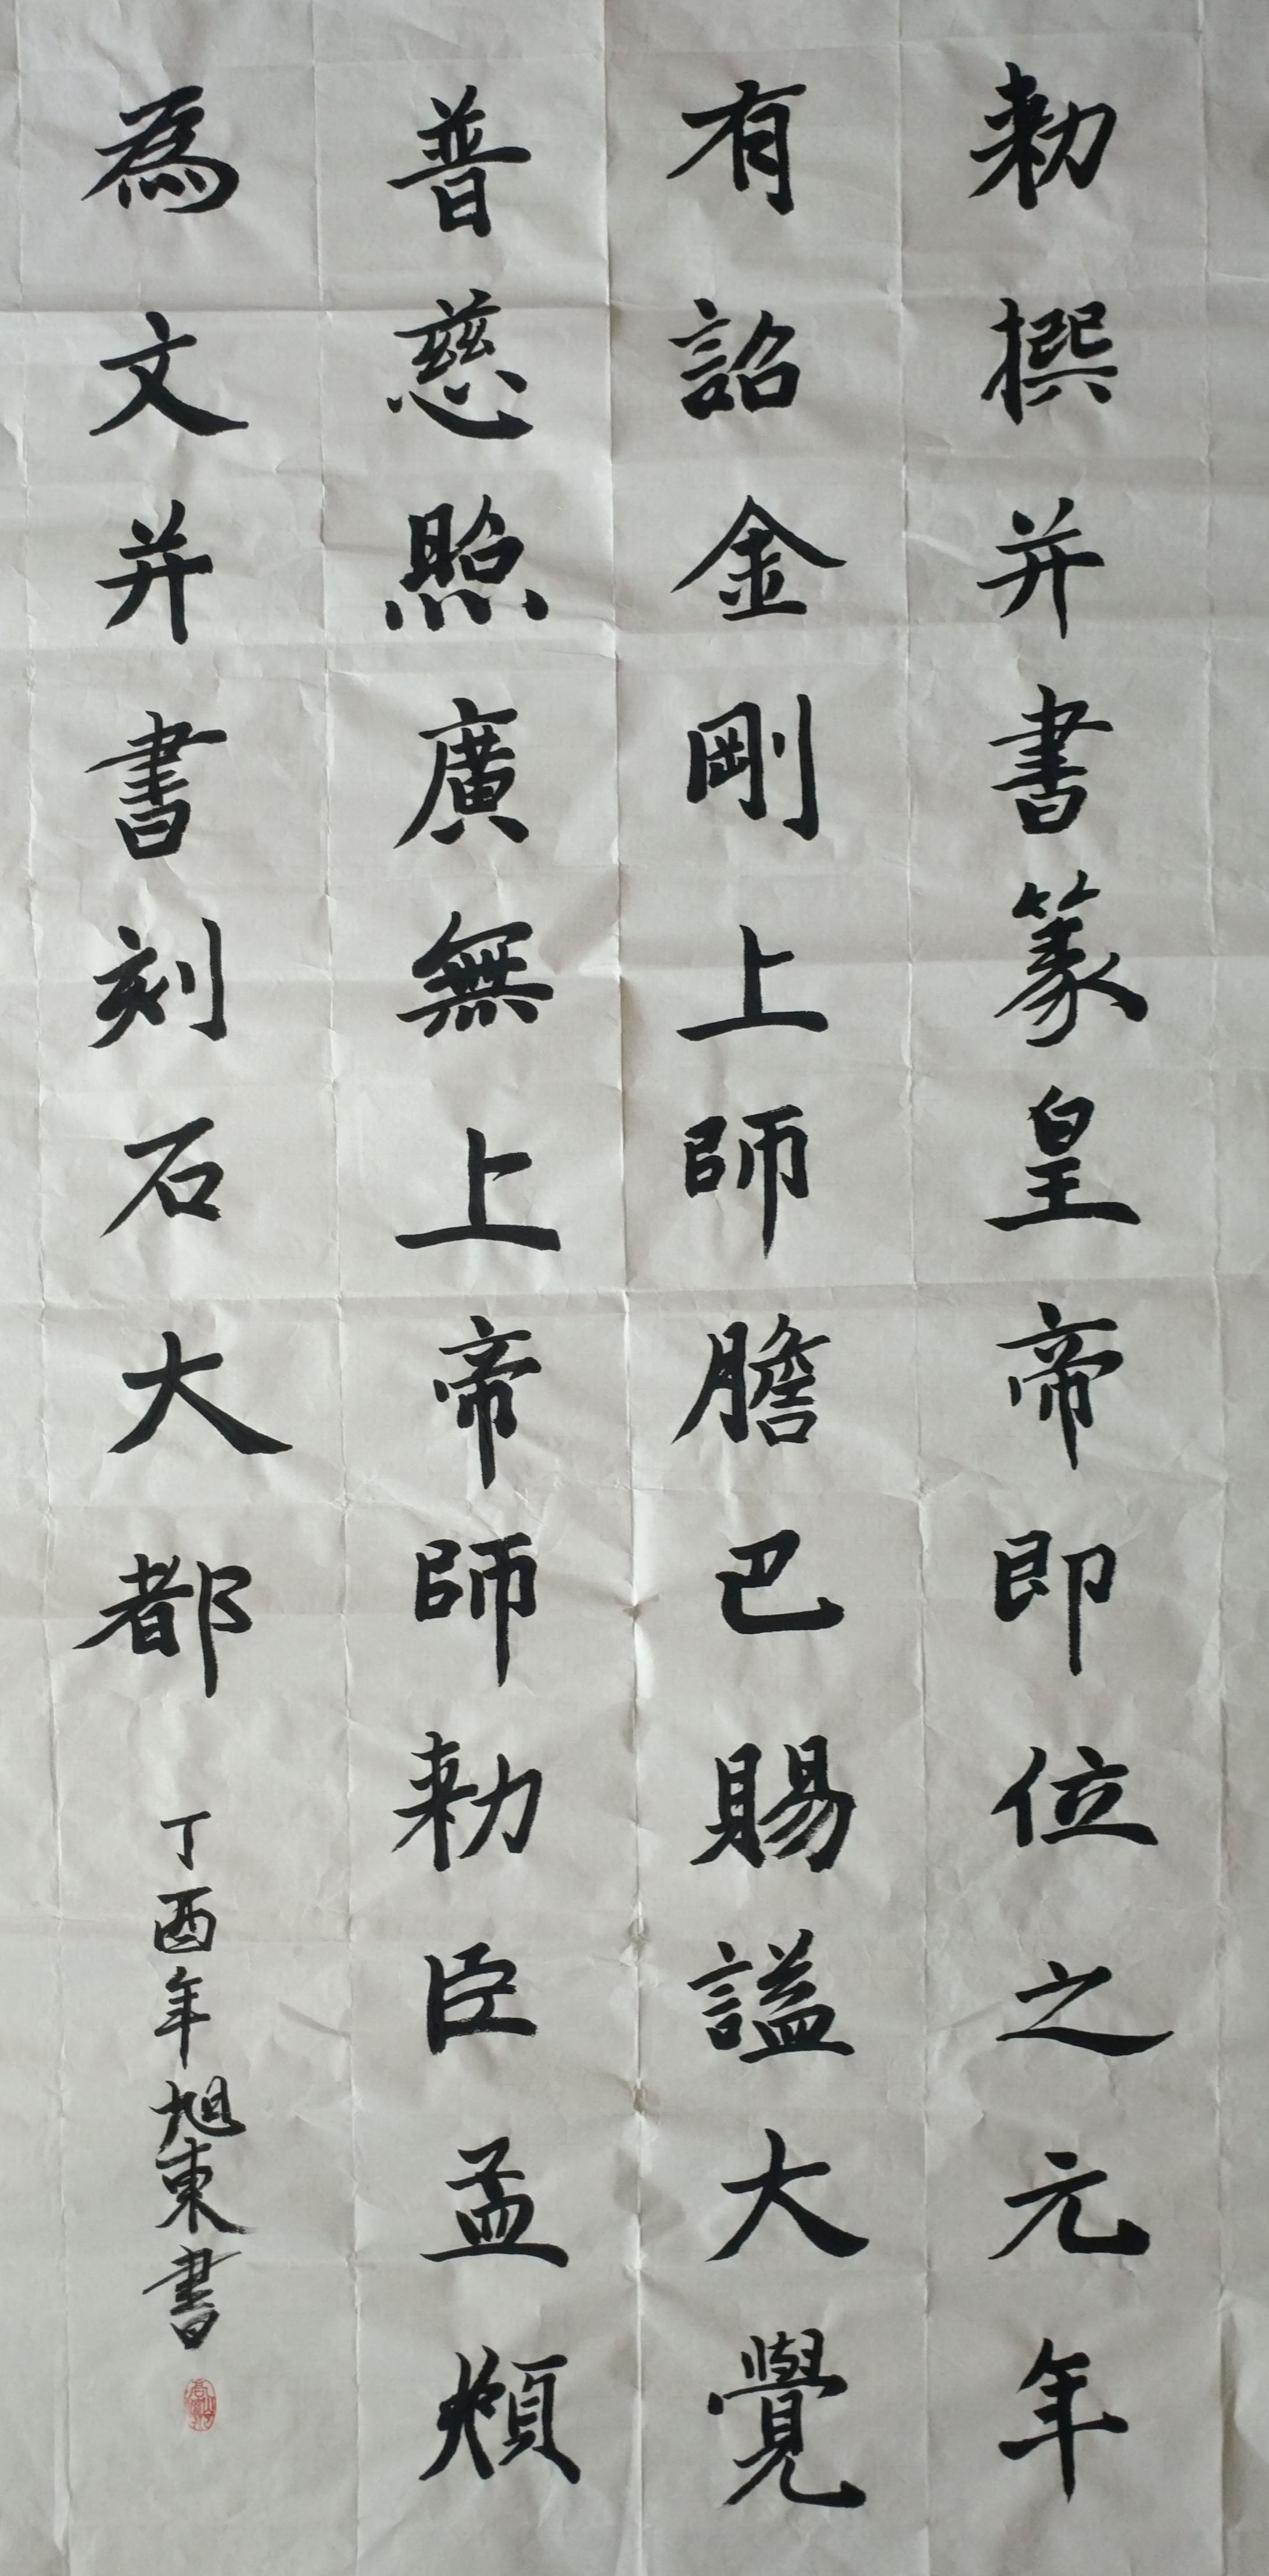 勅撰并書篆皇帝即位之元年
有詔金剛上師膽巴賜謚大覺
普慈照廣無上帝師勅臣孟頫
為文并書刻石大都
丁酉年旭東書